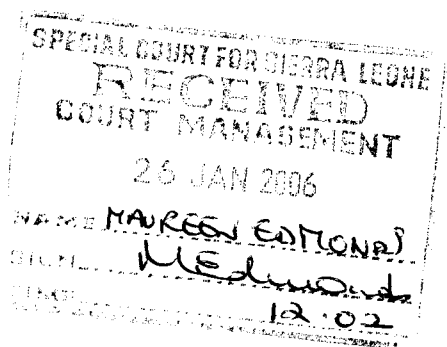 SPECIAL COURT FOR SIERRA LEONE
RECEIVED
COURT MANAGEMENT
26 JAN 2006
NAME MAUREEN EDMONDS
SIGN MEdmonds
TIME 12.02